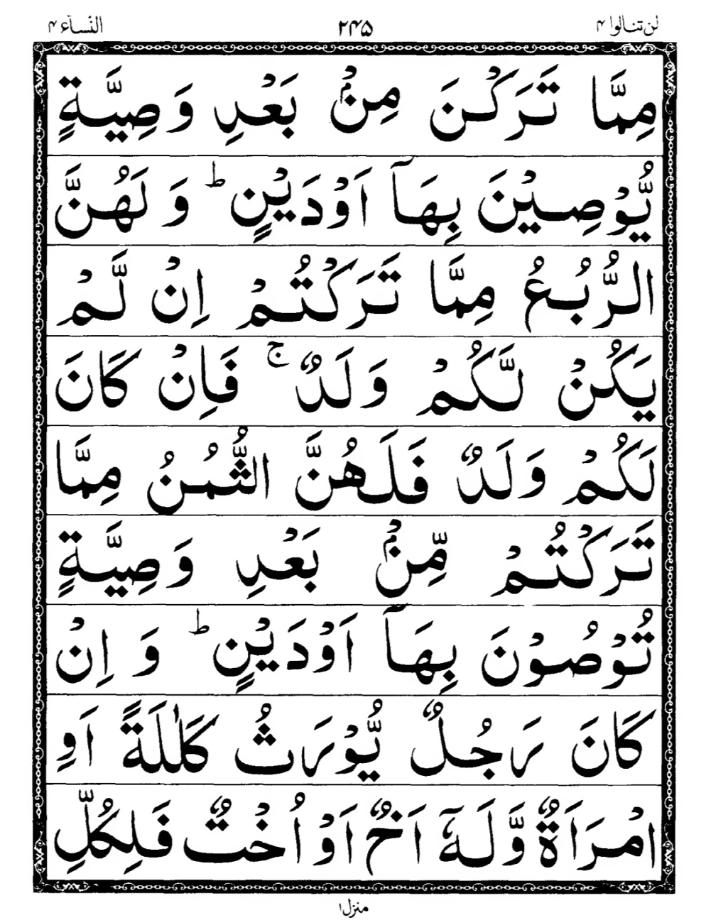 لن تنالوا ۴ ۲۴۵ النّسآء ۴
مِمَّا تَرَكْنَ مِنْۢ بَعْدِ وَصِيَّةٍ
يُّوْصِيْنَ بِهَاۤ اَوْدَيْنٍ ؕ وَ لَهُنَّ
الرُّبُعُ مِمَّا تَرَكْتُمْ اِنْ لَّمْ
يَكُنْ لَّكُمْ وَلَدٌ ۚ فَاِنْ كَانَ
لَكُمْ وَلَدٌ فَلَهُنَّ الثُّمُنُ مِمَّا
تَرَكْتُمْ مِّنْۢ بَعْدِ وَصِيَّةٍ
تُوْصُوْنَ بِهَاۤ اَوْدَيْنٍ ؕ وَ اِنْ
كَانَ رَجُلٌ يُّوْرَثُ كَلٰلَةً اَوِ
امْرَاَةٌ وَّلَهٗۤ اَخٌ اَوْ اُخْتٌ فَلِكُلِّ
منزل۱